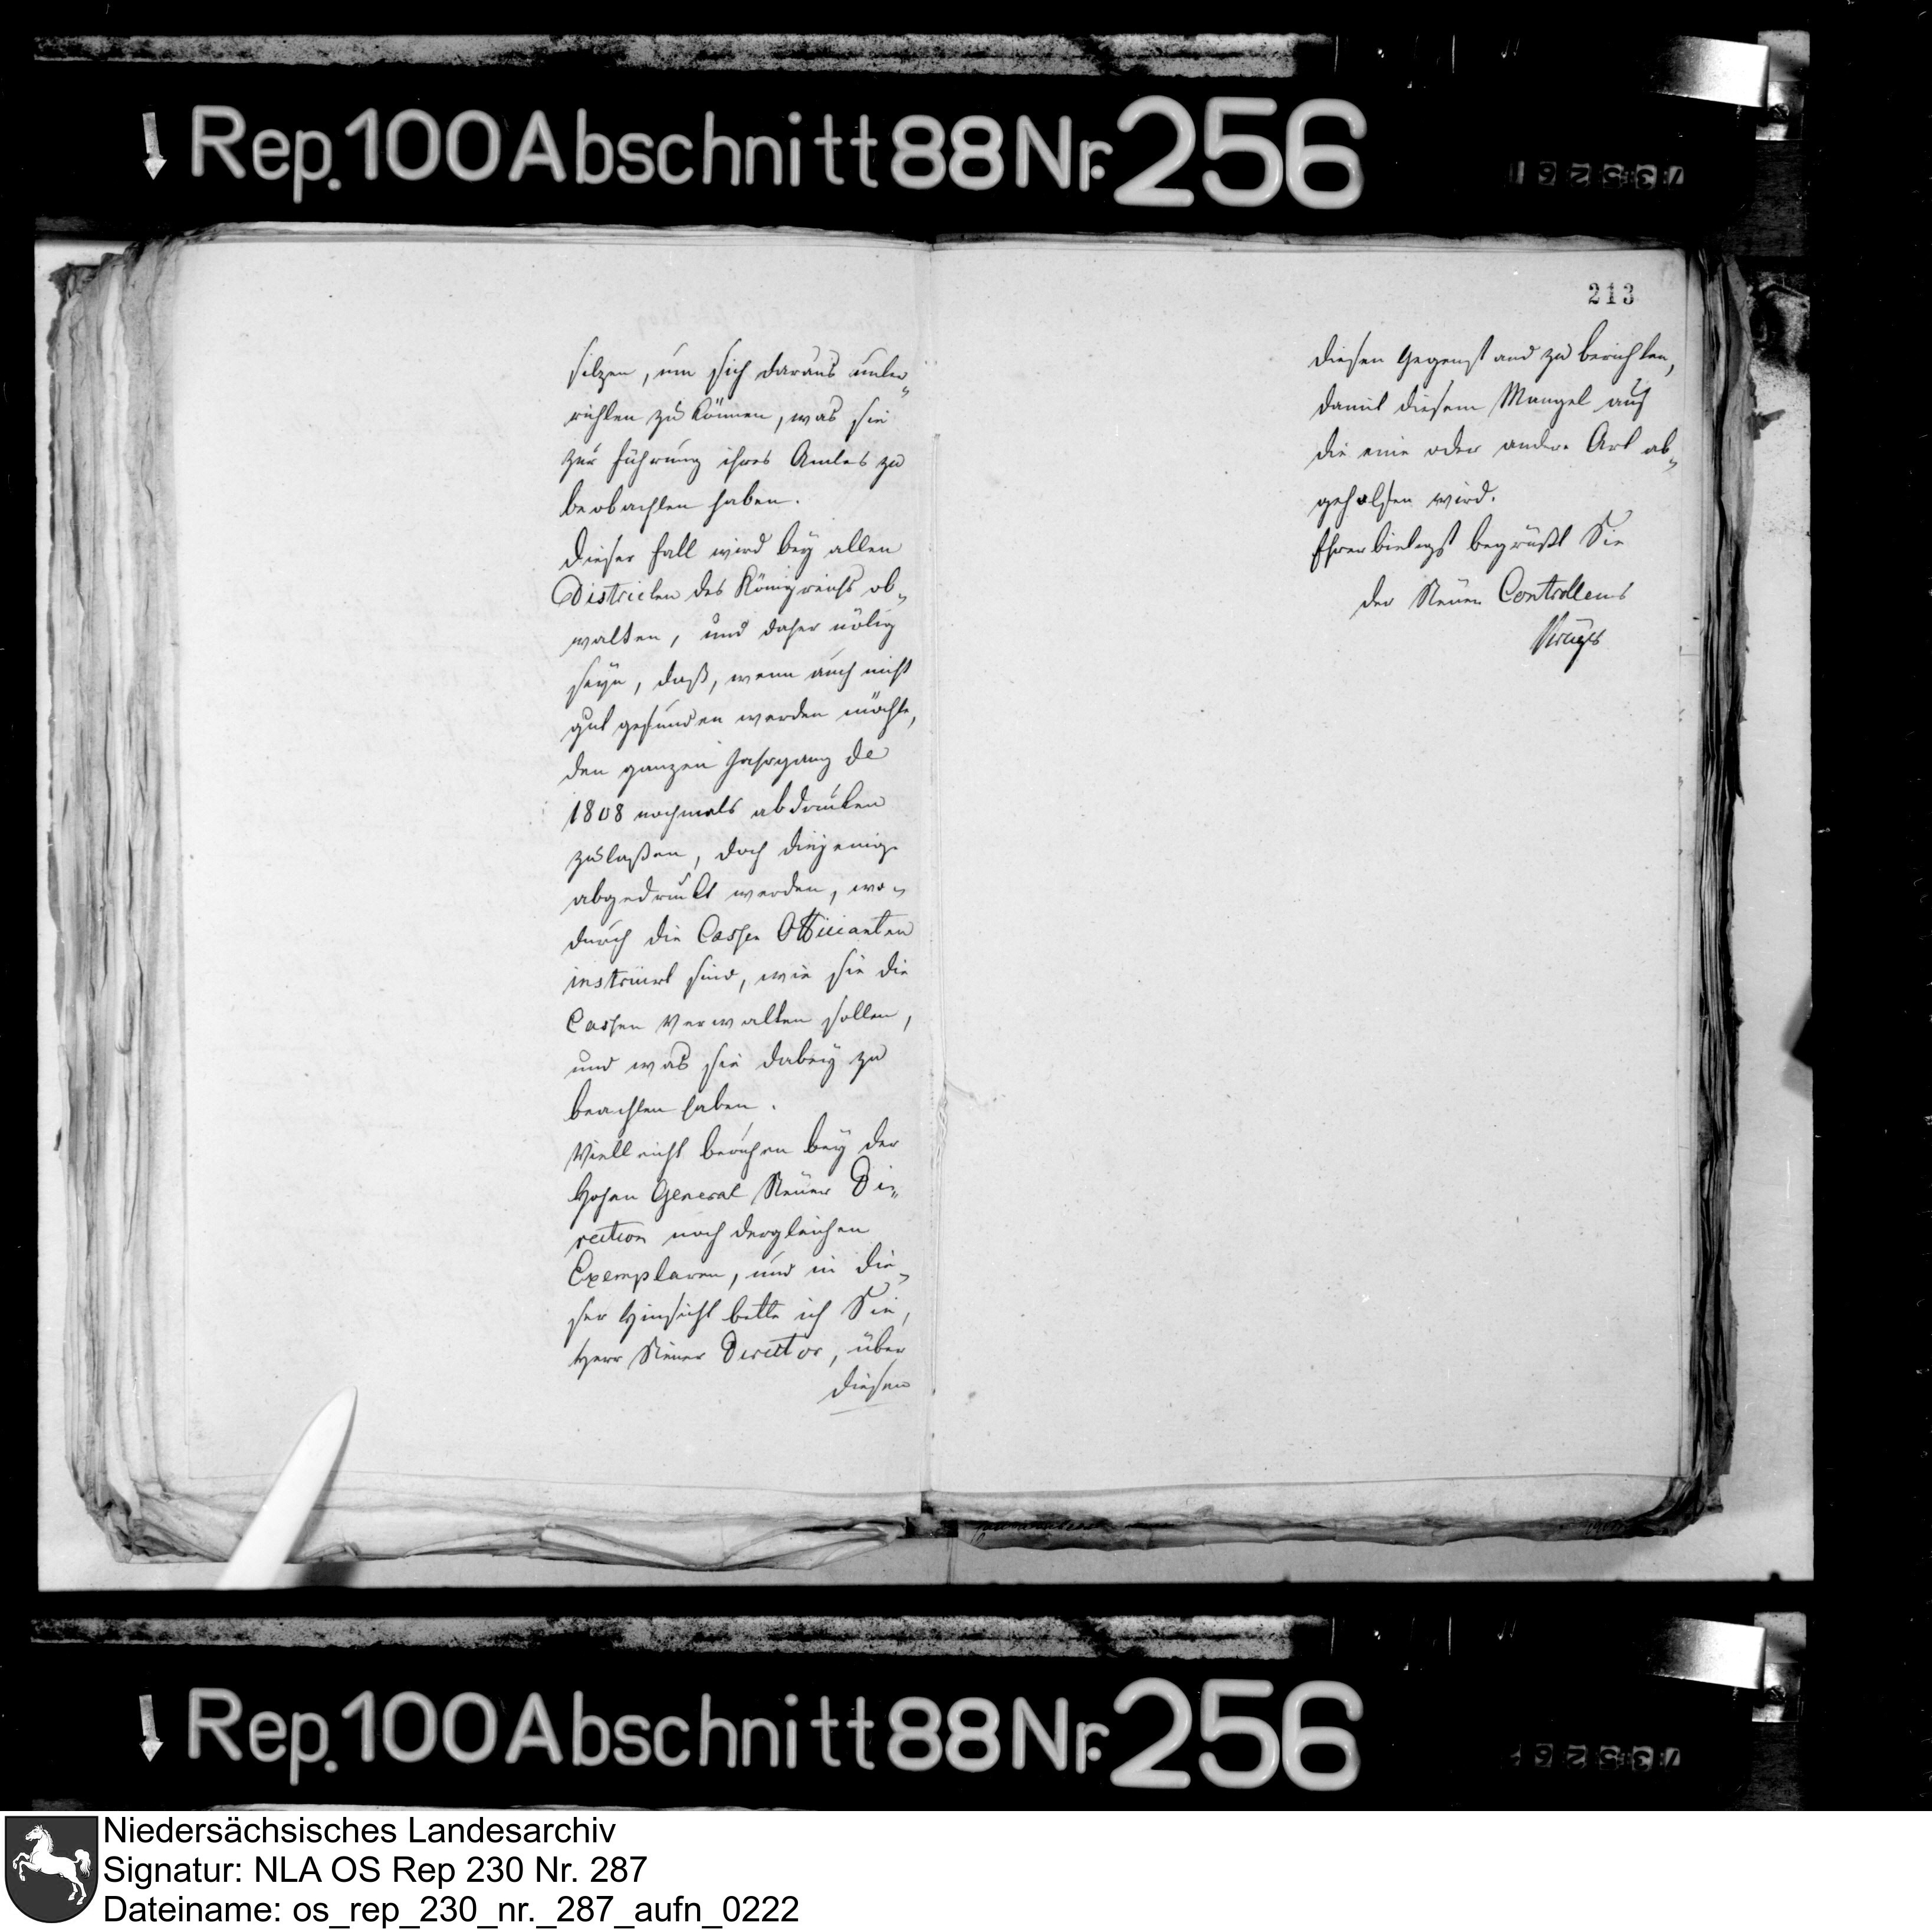 Rep. 100 Abschnitt 88 Nr. 256
sitzen, um sich daraus unter„
richten zu können, was sie
zur Führung ihres Amtes zu
beobachten haben.
Dieser Fall wird bey allen
Districten des Königreichs ob„
walten, und daher nötig
seyn, daß, wenn auch nicht
gut gefunden werden möchte,
den ganzen Jahrgang de
1808 nochmals abdrucken
zu laßen, doch diejenige
abgedruckt werden, wo„
durch die Cassen Officianten
instruirt sind, wie sie die
Cassen verwalten sollen,
und was sie dabey zu
beachten haben.
Vielleicht beruhen bey der
Hohen General Steuer Di„
rection noch dergleichen
Exemplaren, und in die„
ser Hinsicht bitte ich Sie,
Herr Steuer Director, über
diesen
213
diesen Gegenstand zu berichten,
damit diesem Mangel auf
die eine oder andere Art ab„
geholfen wird.
Ehrerbietigst begrüßt Sie
der Steuer Controlleur
Rep. 100 Abschnitt 88 Nr. 256
Niedersächsisches Landesarchiv
Signatur: NLA OS Rep 230 Nr. 287
Dateiname: os_rep_230_nr._287_aufn_0222